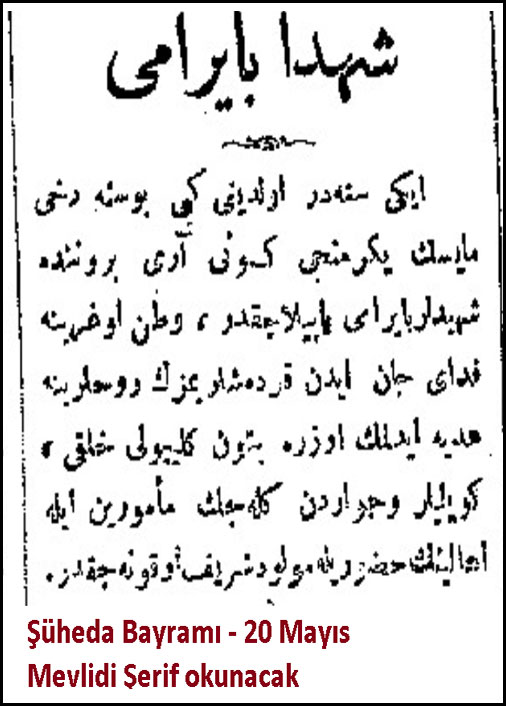 شهدا بایرامی
ایكی سنه‌در اولدیغی كبی بوسنه دخی
مایسك یكرمنجی كونی آری بروننده
شهیدلر بایرامی یاپیلاجقدر ، وطن اوغرینه
فدای جان ایدن قردشلریمزك روحلرینه
هدیه ایدلمك اوزره بتون كلیبولی خلقی ،
كویلیلر وجواردن كله‌جك مأمورین ایله
اهالینك حضورینه مولود شریف اوقونه‌جقدر.
Şüheda Bayramı - 20 Mayıs
Mevlidi Şerif okunacak